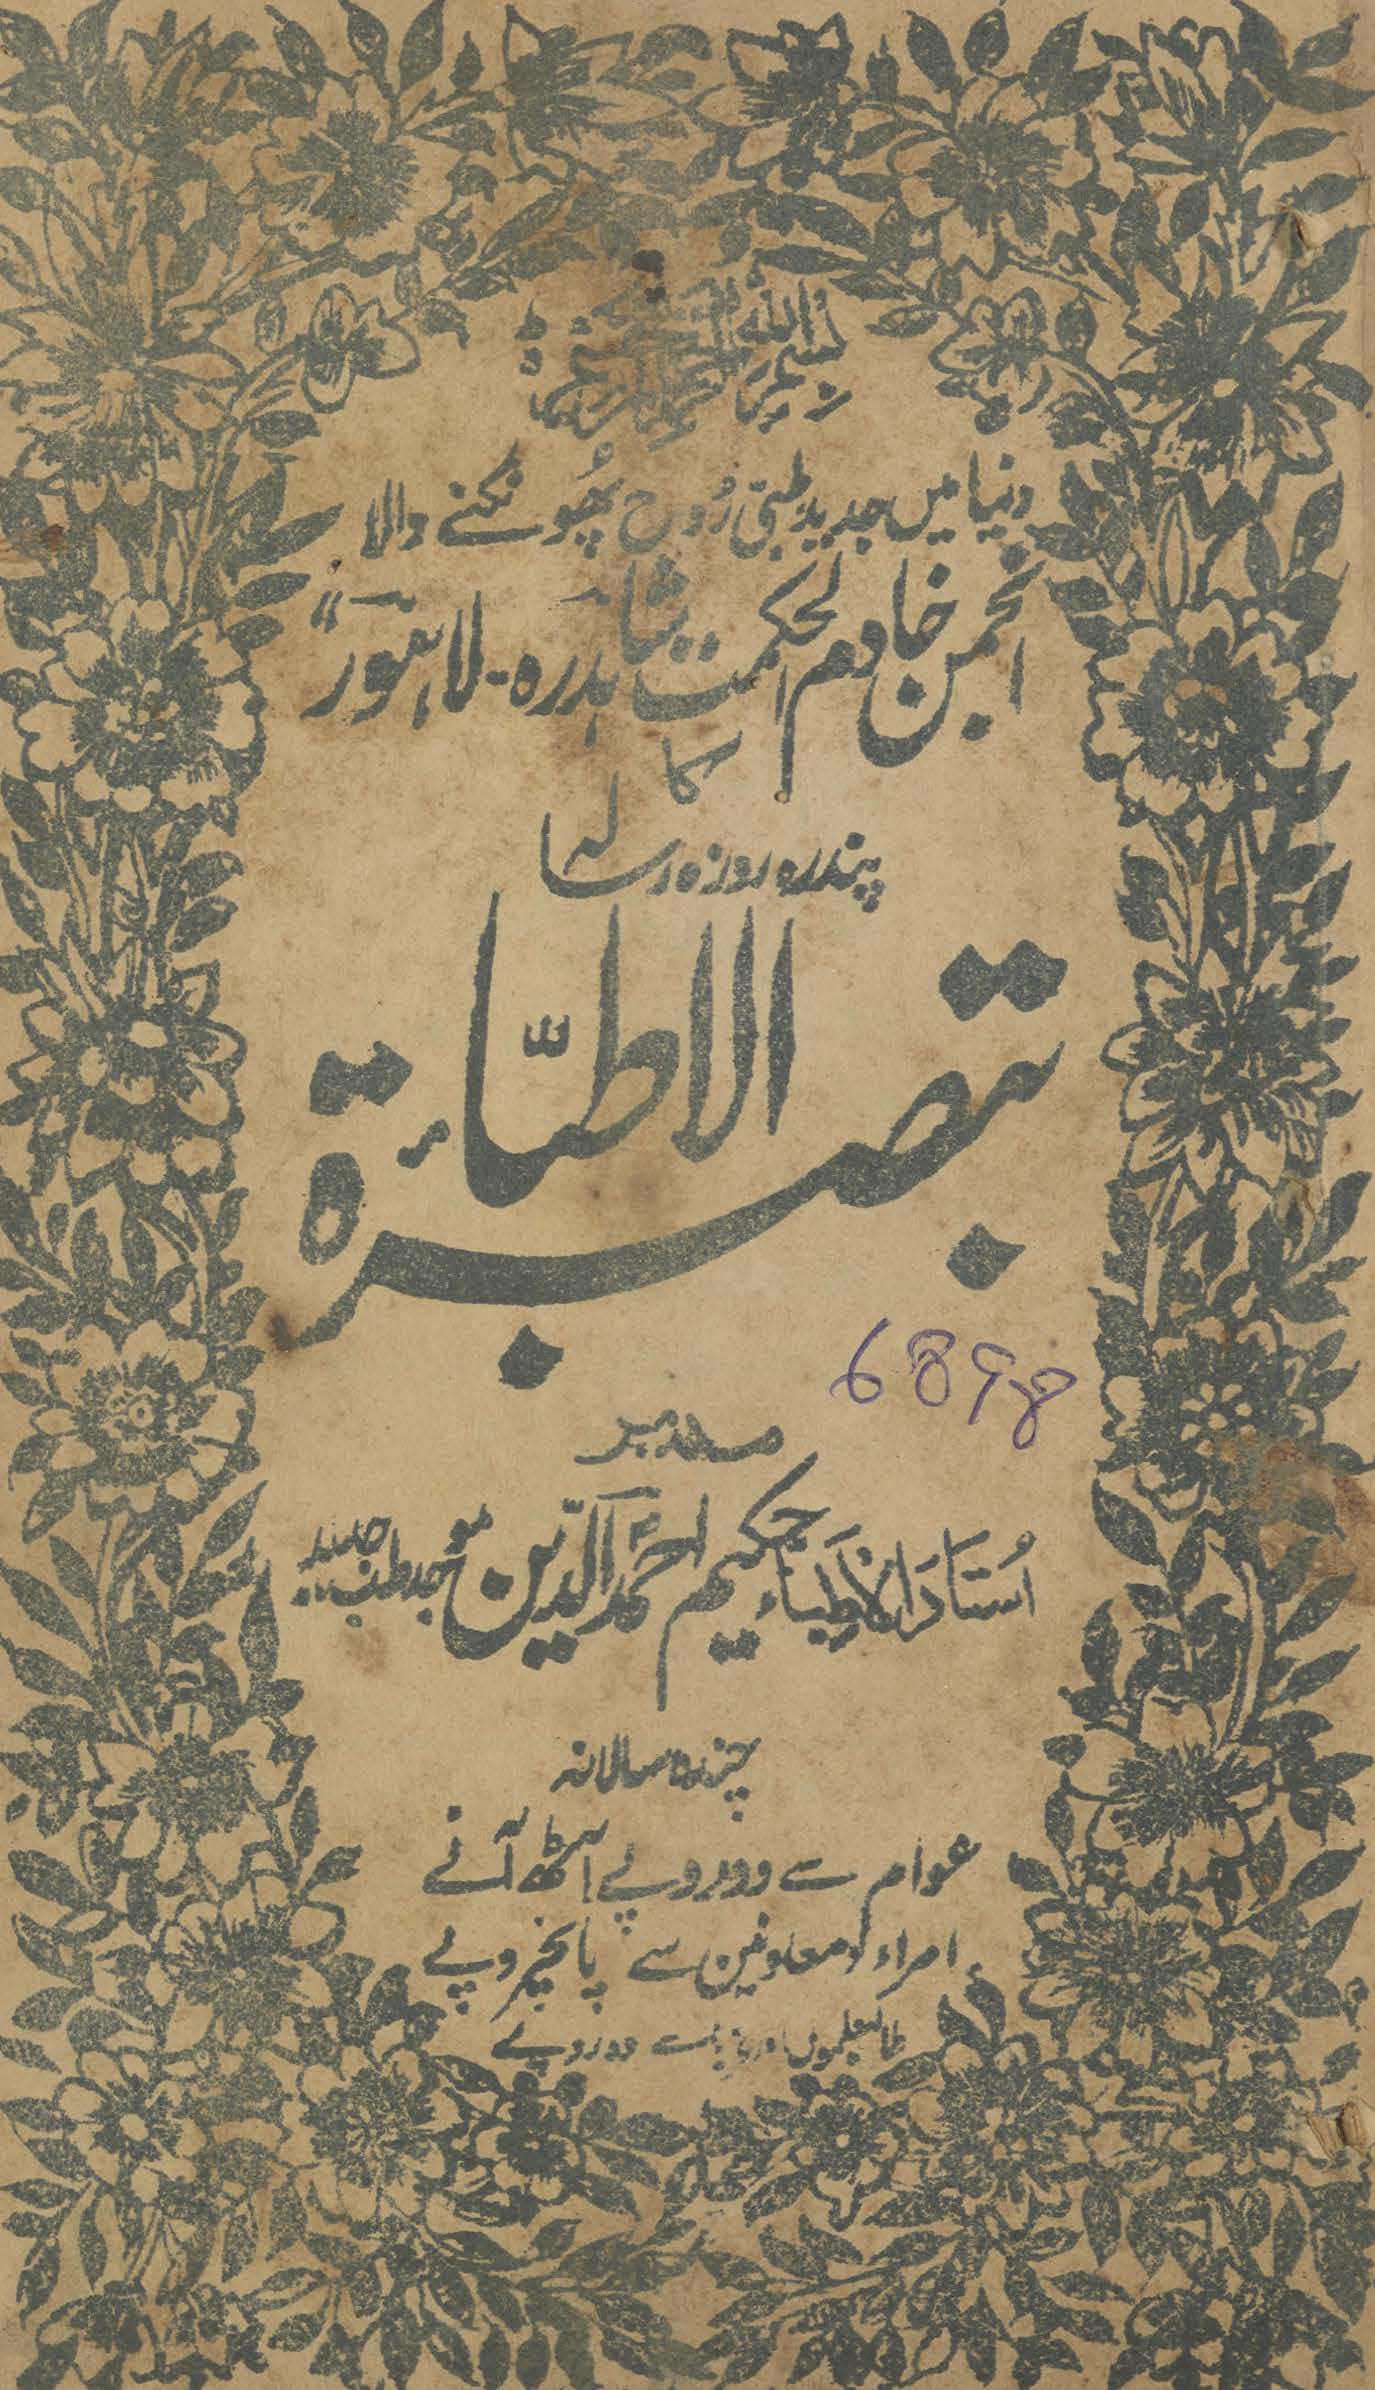 بسم اللہ الرحمن الرحیم
دنیا میں جدید طبّی رُوح پھُونکنے والا
انجمن خادم الحکمت شاہدرہ۔ لاہور"
کا
پندرہ روزہ رسالہ
تبصرۃ الاطبّاء
6898
مدیر
اُستاد الاطباء حکیم احمد الدّین موجد طب جدید
چندہ سالانہ
عوام سے دو روپے آٹھ آنے
امراء و معاونین سے پانچ روپے
طالبعلموں اور سے دو روپے